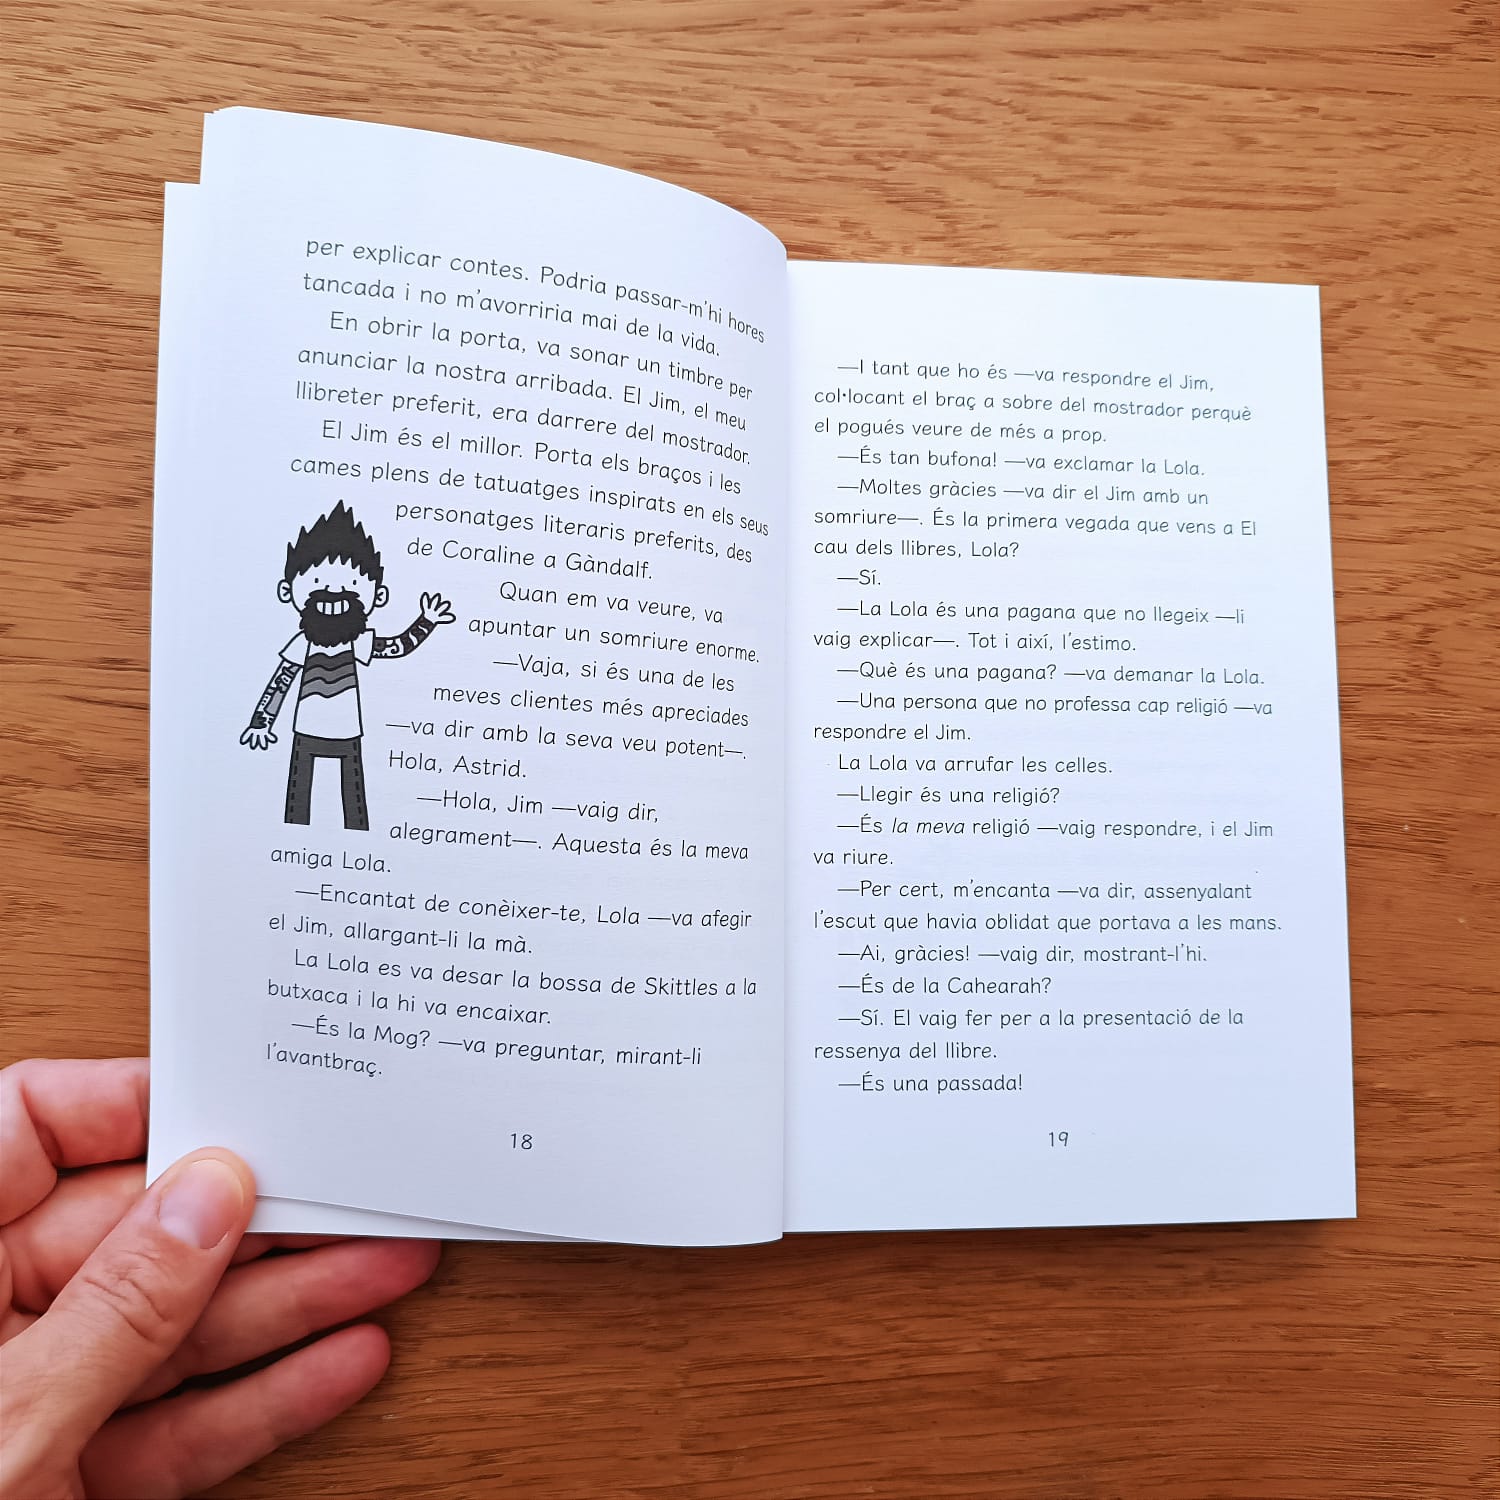 per explicar contes. Podria passar-m'hi hores
tancada i no m'avorriria mai de la vida.
En obrir la porta, va sonar un timbre per
anunciar la nostra arribada. El Jim, el meu
llibreter preferit, era darrere del mostrador.
El Jim és el millor. Porta els braços i les
cames plens de tatuatges inspirats en els seus
personatges literaris preferits, des
de Coraline a Gàndalf.
Quan em va veure, va
apuntar un somriure enorme.
—Vaja, si és una de les
meves clientes més apreciades
—va dir amb la seva veu potent—.
Hola, Astrid.
—Hola, Jim —vaig dir,
alegrament—. Aquesta és la meva
amiga Lola.
—Encantat de conèixer-te, Lola —va afegir
el Jim, allargant-li la mà.
La Lola es va desar la bossa de Skittles a la
butxaca i la hi va encaixar.
—És la Mog? —va preguntar, mirant-li
l'avantbraç.
18
—I tant que ho és —va respondre el Jim,
col·locant el braç a sobre del mostrador perquè
el pogués veure de més a prop.
—És tan bufona! —va exclamar la Lola.
—Moltes gràcies —va dir el Jim amb un
somriure—. És la primera vegada que vens a El
cau dels llibres, Lola?
—Sí.
—La Lola és una pagana que no llegeix —li
vaig explicar—. Tot i així, l'estimo.
—Què és una pagana? —va demanar la Lola.
—Una persona que no professa cap religió —va
respondre el Jim.
La Lola va arrufar les celles.
—Llegir és una religió?
—És la meva religió —vaig respondre, i el Jim
va riure.
—Per cert, m'encanta —va dir, assenyalant
l'escut que havia oblidat que portava a les mans.
—Ai, gràcies! —vaig dir, mostrant-l'hi.
—És de la Cahearah?
—Sí. El vaig fer per a la presentació de la
ressenya del llibre.
—És una passada!
19